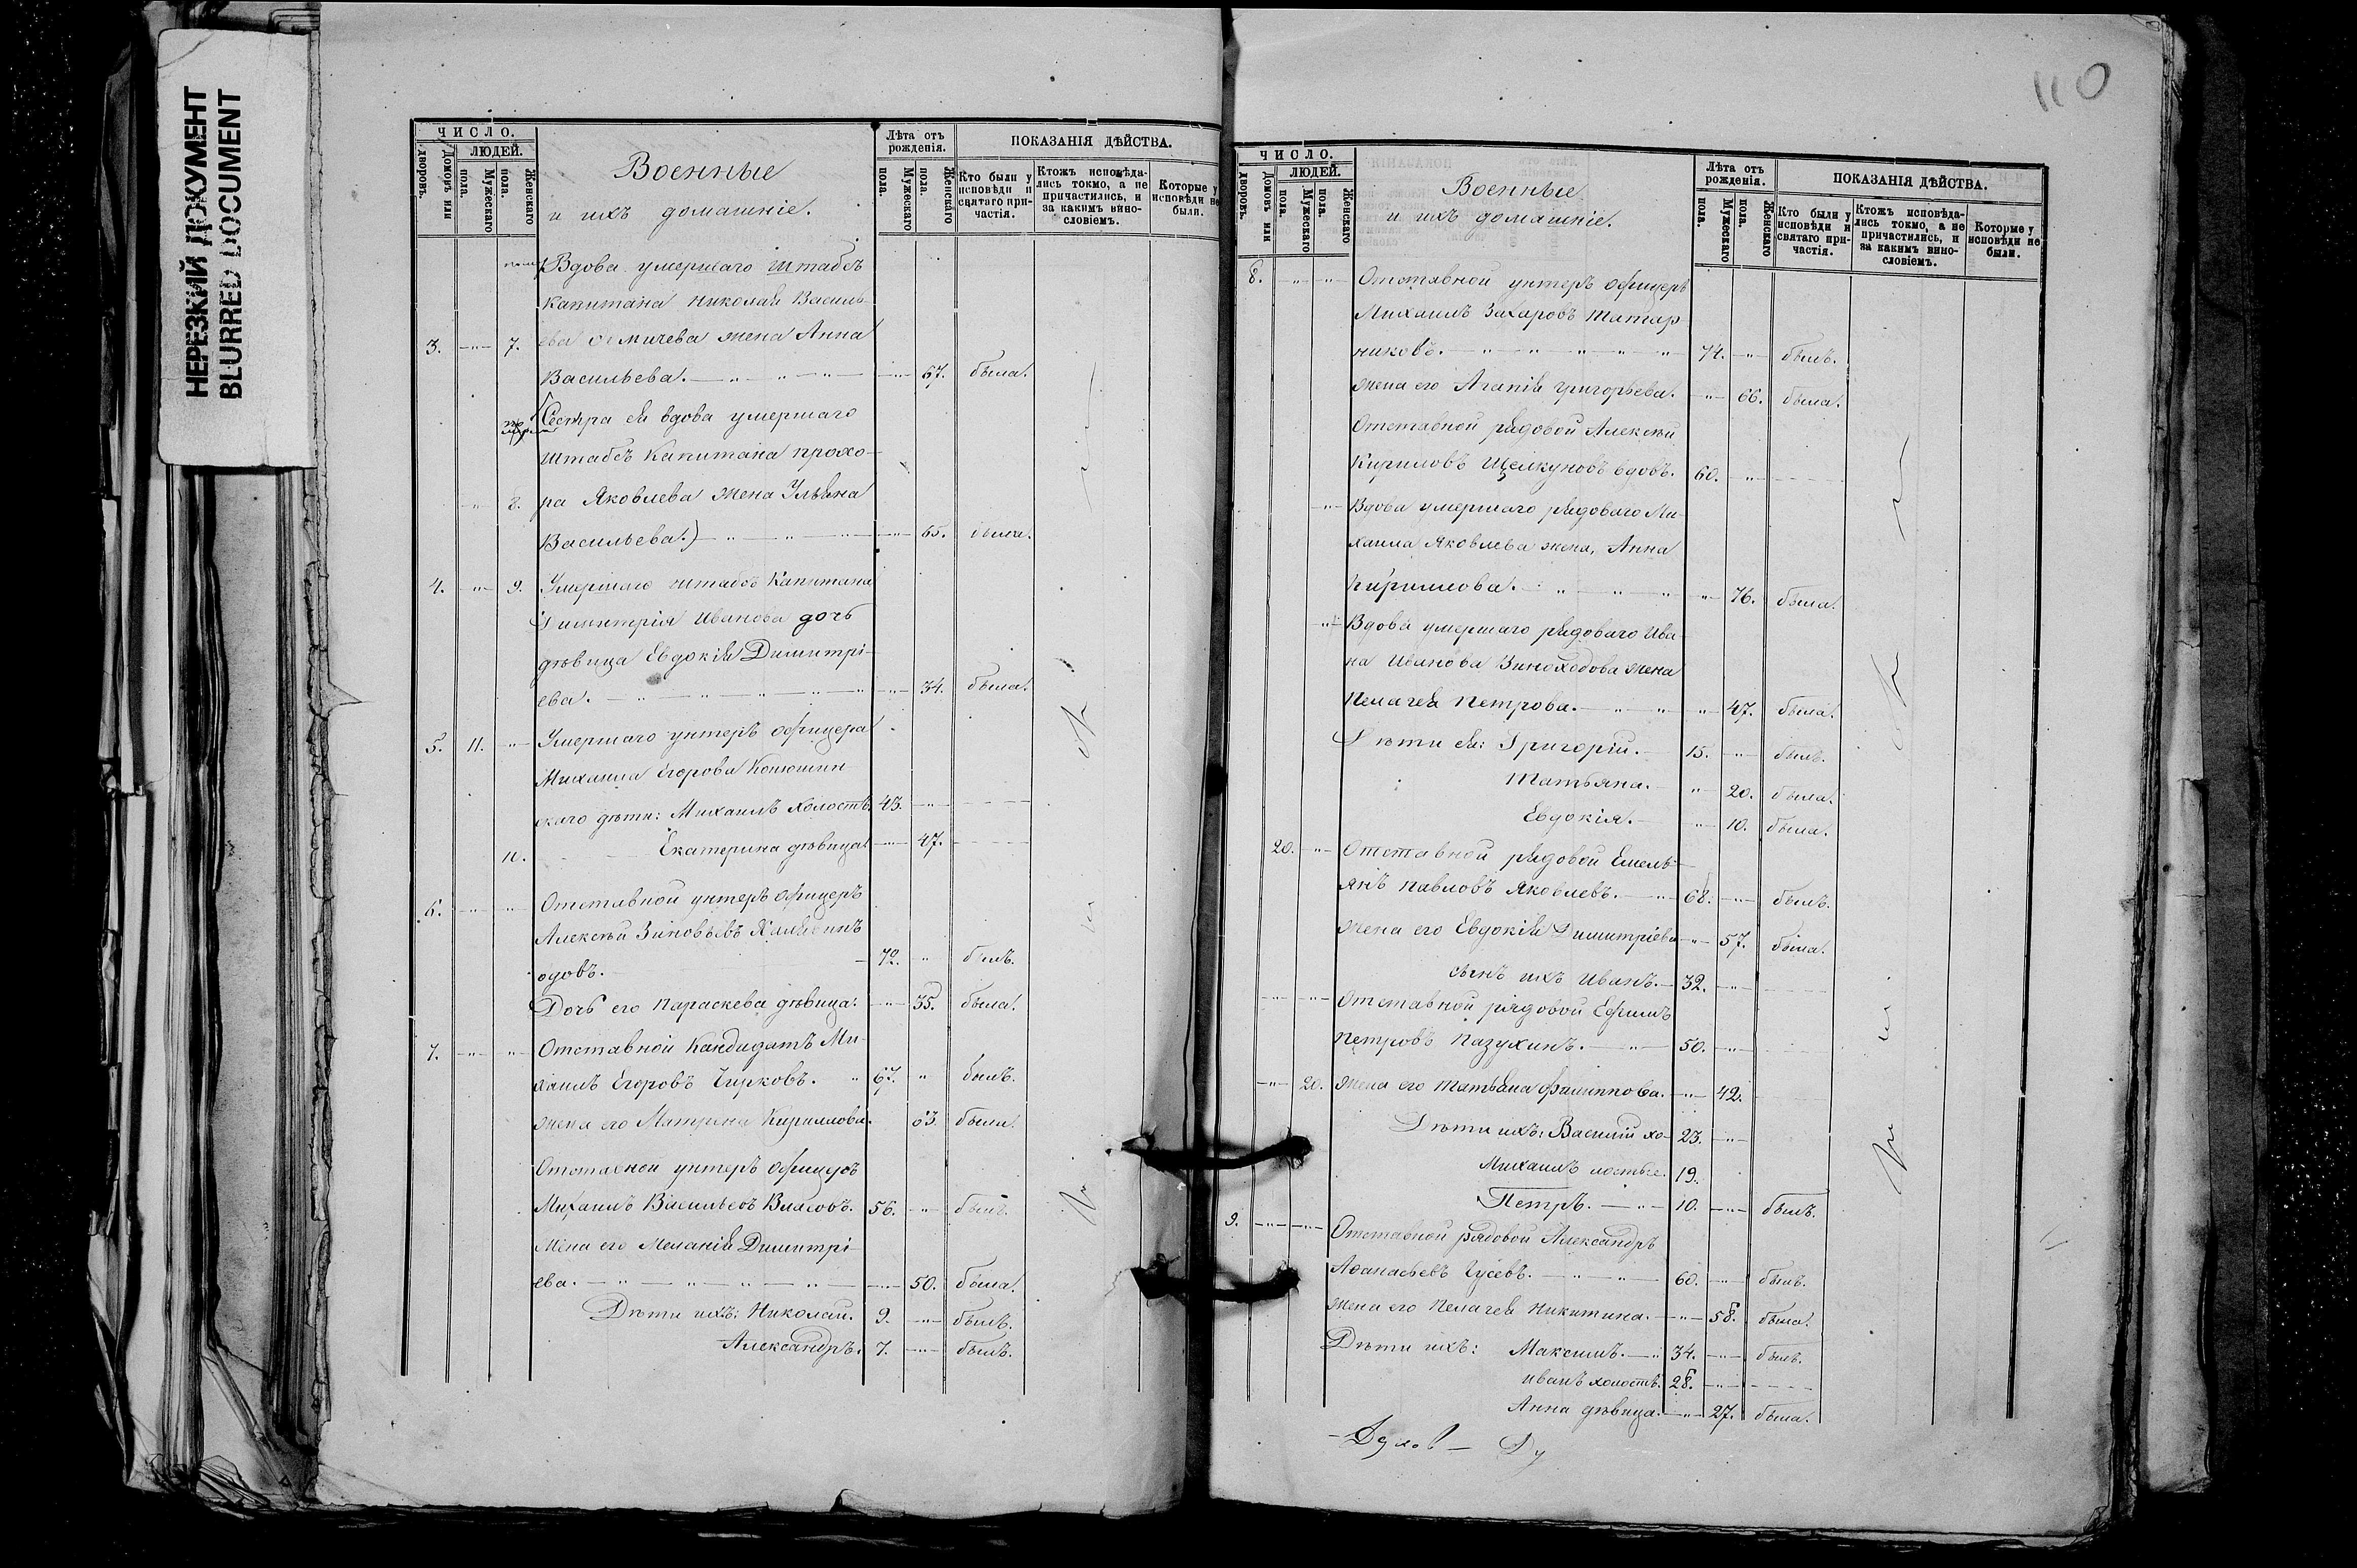 НЕРЕЗКИЙ ДОКУМЕНТ
BLURRED DOCUMENT
ЧИСЛО.
ЛЮДЕЙ.
Домовъ или дворовъ.
Мужескаго пола.
Женскаго пола.
Военные
и ихъ домашніе.
Лѣта отъ рожденія.
Мужескаго пола.
Женскаго пола.
ПОКАЗАНІЯ ДѢЙСТВА.
Кто были у исповѣди и святаго причастія.
Ктожъ исповѣдались токмо, а не причастились, и за какимъ винословіемъ.
Которые у исповѣди не были.
Вдова умершаго Штабсъ
Капитана Николая Василь-
3. -"- 7. ева жена Анна
Васильева. -"- 67. была.
Сестра ея вдова умершаго
Штабсъ Капитана Прохо-
-"- 8. ра Яковлева жена Ульяна
Васильева.) -"- 65. была.
4. -"- 9. Умершаго штабсъ Капитана
Димитрія Иванова дочь
дѣвица Евдокія Димитрі-
ева. -"- 34. была.
5. 11. -"- Умершаго унтеръ офицера
Михаила Егорова Конюшин-
скаго дѣти: Михаилъ холостъ. 43. -"-
10. Екатерина дѣвица. -"- 47.
6. -"- -"- Отставной унтеръ офицеръ
Алексѣй Зиновьевъ
вдовъ. 72. " былъ.
Дочь его Параскева дѣвица. -"- 35. была.
7. -"- -"- Отставной Кандидатъ Ми-
хаилъ Егоровъ Чирковъ. " 67. " былъ.
жена его Матрена Кириллова. 63. была.
Отставной унтеръ офицеръ
Михаилъ Васильевъ Власовъ. 56. -"- былъ.
Жена его Меланія Димитрі-
ева. -"- 50. была.
Дѣти ихъ: Николай. 9. -"- былъ.
Александръ. 7. -"- былъ.
110
ЧИСЛО.
ЛЮДЕЙ.
Домовъ или дворовъ.
Мужескаго пола.
Женскаго пола.
Военные
и ихъ домашніе.
Лѣта отъ рожденія.
Мужескаго пола.
Женскаго пола.
ПОКАЗАНІЯ ДѢЙСТВА.
Кто были у исповѣди и святаго причастія.
Ктожъ исповѣдались токмо, а не причастились, и за какимъ винословіемъ.
Которые у исповѣди не были.
8. -"- -"- Отставной унтеръ офицеръ
Михаилъ Захаровъ Татар
никовъ. 74. -"- былъ.
жена его Агапія Григорьева. -"- 66. была.
Отставной рядовой Алексѣй
Кириловъ Щелкуновъ вдовъ. 60. -"-
-"- Вдова умершаго рядоваго Ми-
хаила Яковлева жена, Анна
Кириллова. -"- 76. была.
-"- Вдова умершаго рядоваго Ива-
на Иванова Зиноходова жена
Пелагея Петрова. -"- 47. была.
Дѣти ея: Григорій. 15. -"- былъ.
Татьяна. -"- 20. была.
Евдокія. -"- 10. была.
20. -"- Отставной рядовой Емель-
янъ Павловъ Яковлевъ. 68. -"- былъ.
жена его Евдокія Димитріева -"- 57. была.
сынъ ихъ Иванъ. 32. -"-
-"- -"- Отставной рядовой Ефимъ
Петровъ Пазухинъ. 50. -"-
-"- 20. жена его Татьяна Филиппова. -"- 42.
Дѣти ихъ: Василій хо- 23. -"-
Михаилъ лостые. 19.
Петръ. 10. -"- былъ.
9. -"- -"- Отставной рядовой Александръ
Аѳанасьевъ Гусевъ. 60. -"- былъ.
жена его Пелагея Никитина. -"- 58. была.
Дѣти ихъ: Максимъ. 34. -"- былъ.
Иванъ холостъ. 28. -"-
Анна дѣвица. -"- 27. была.